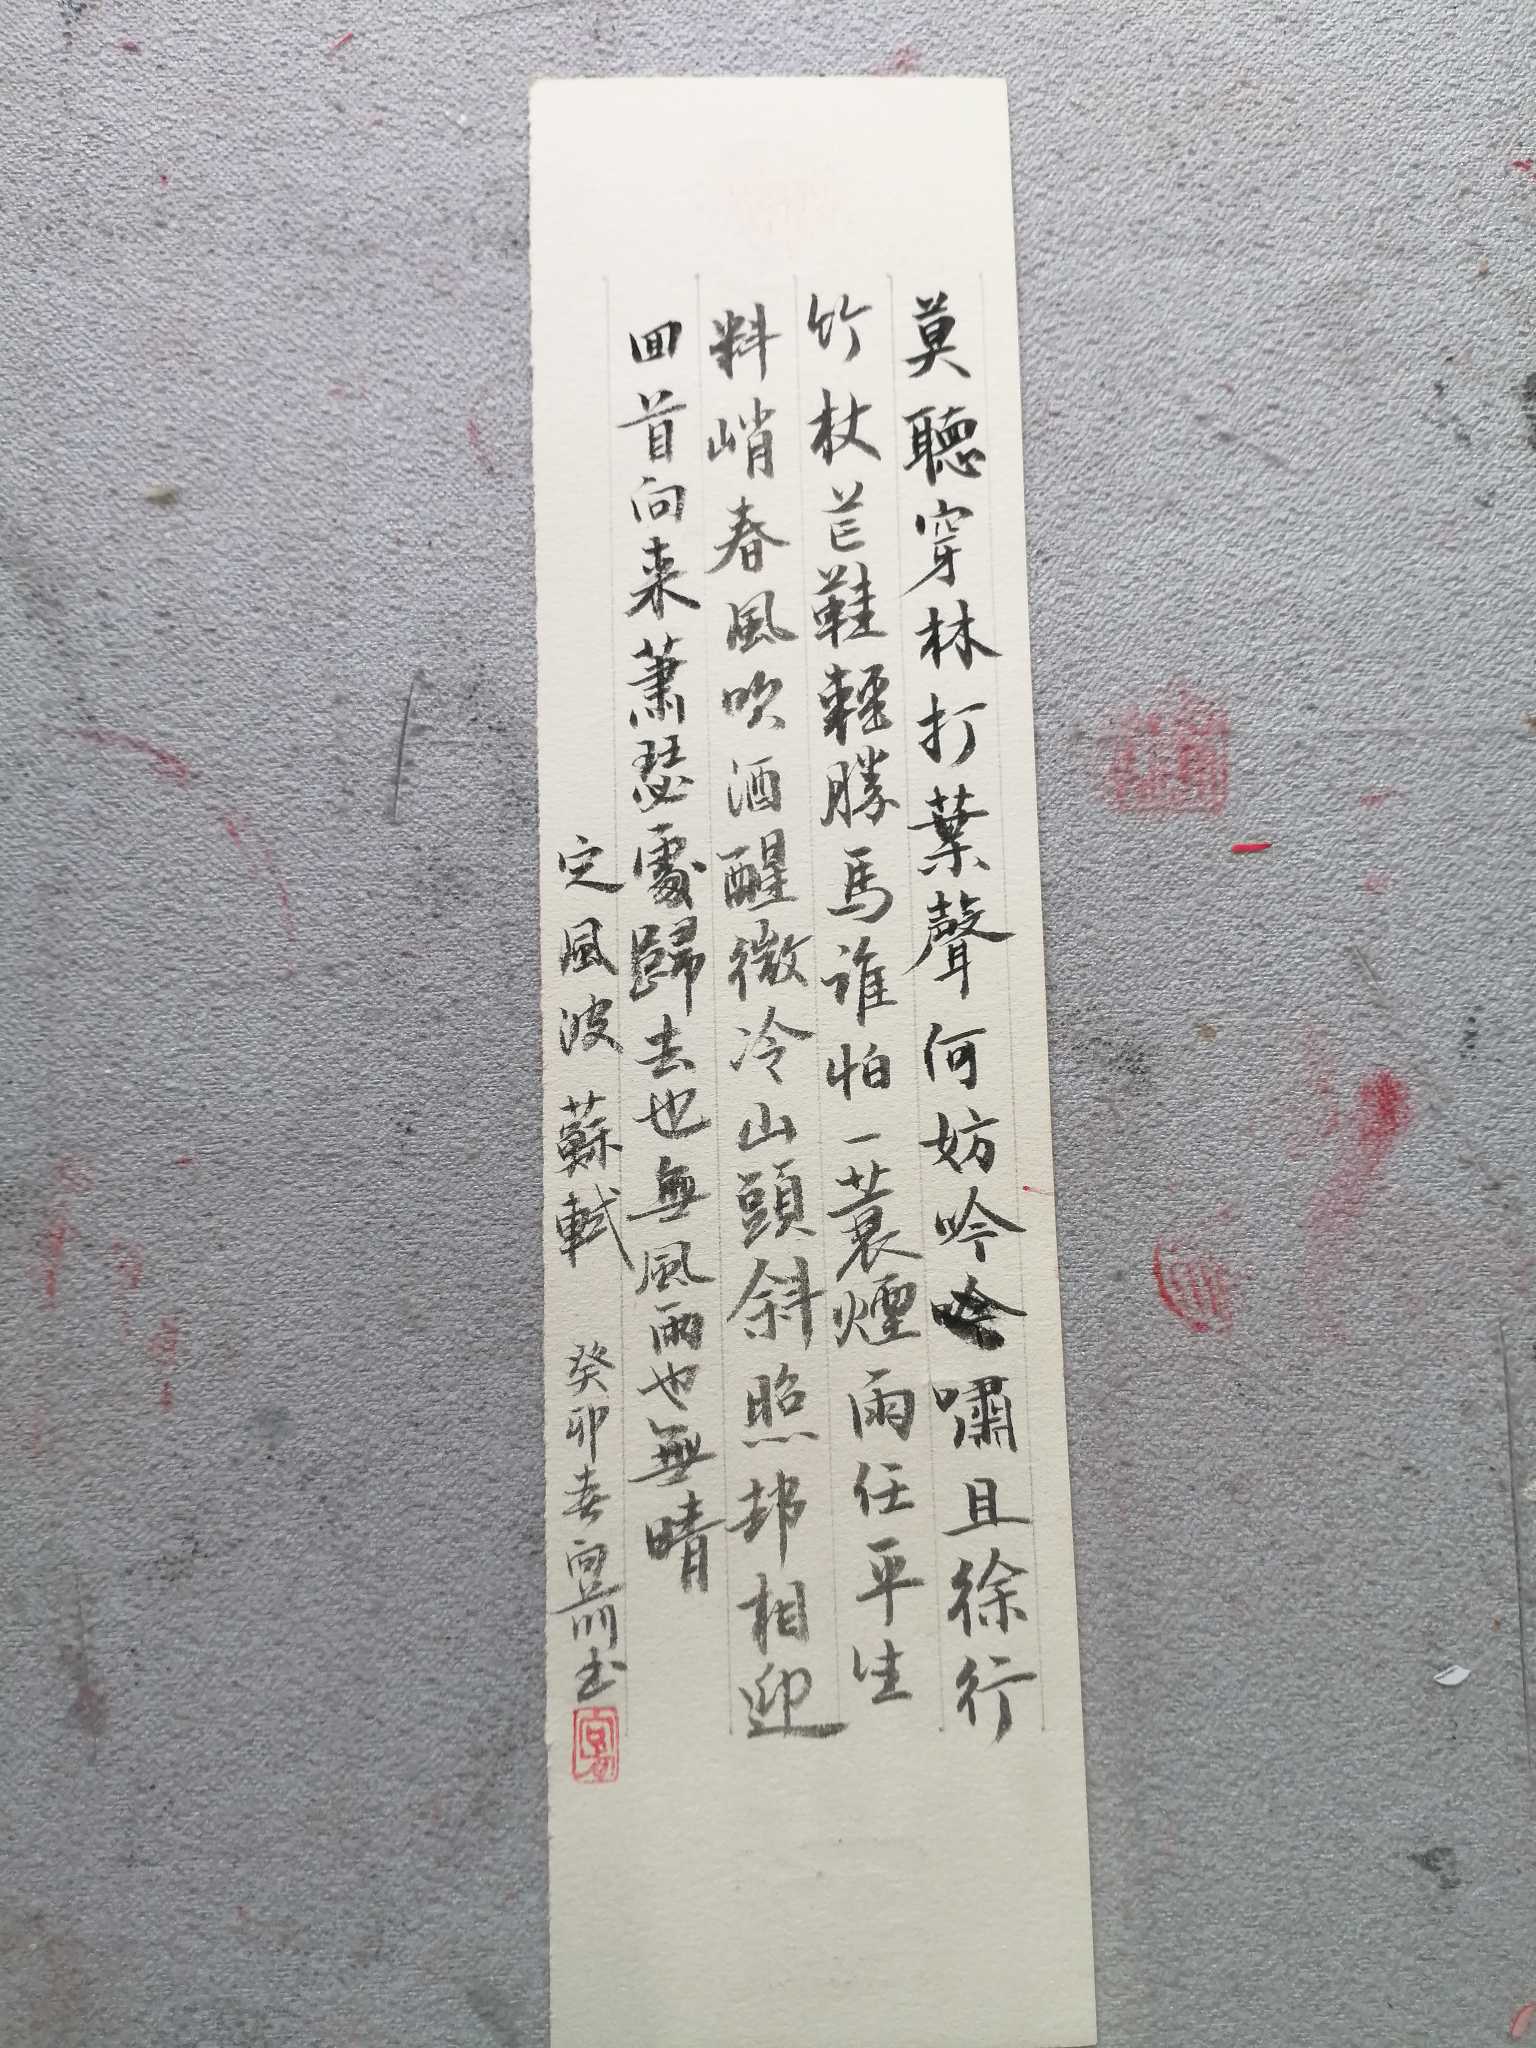 莫聽穿林打葉聲何妨吟吟嘯且徐行
竹杖芒鞋輕勝馬誰怕一蓑煙雨任平生
料峭春風吹酒醒微冷山頭斜照却相迎
回首向來蕭瑟處歸去也無風雨也無晴
定風波 蘇軾 癸卯春